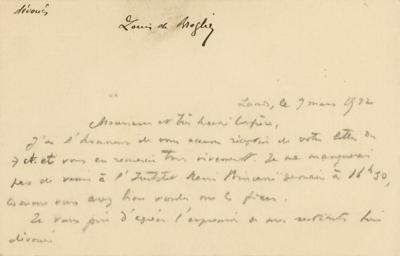 dévoués
Louis de Broglie
Paris, le 9 mars 1932
Monsieur et très honoré Confrère,
J'ai l'honneur de vous accuser réception de votre lettre du
7 et vous en remercie très vivement. Je ne manquerai
pas de venir à l'Institut Henri Poincaré demain à 16h30,
comme vous avez bien voulu me le
Je vous prie d'agréer l'expression de mes sentiments bien
dévoués